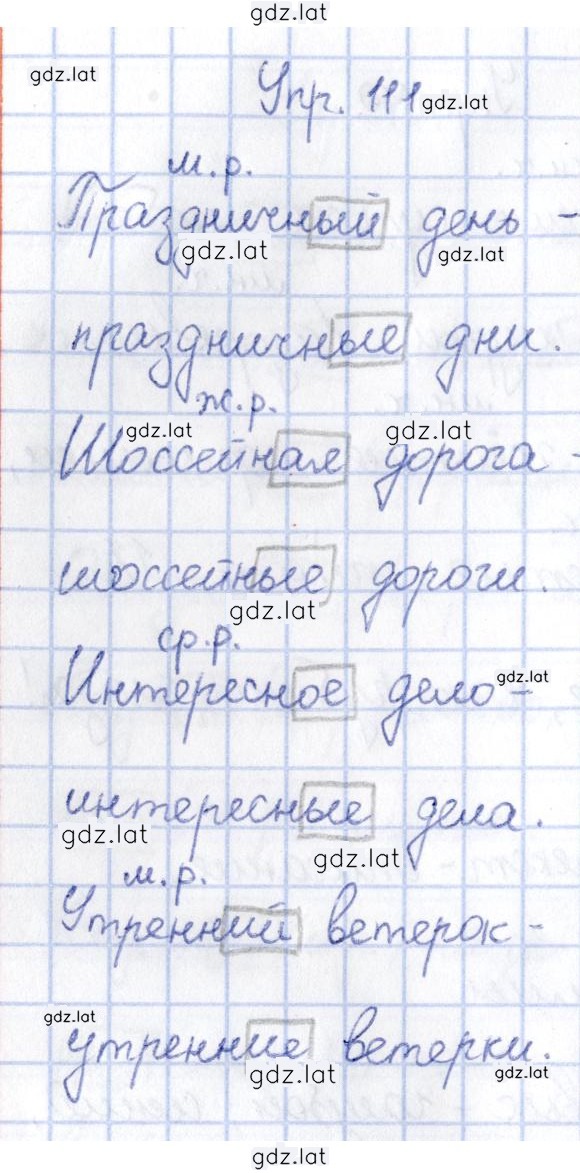 gdz.lat
gdz.lat
Упр. 111 gdz.lat
м.р.
Праздничный день -
gdz.lat gdz.lat
праздничные дни.
ж.р.
gdz.lat gdz.lat
Шоссейная дорога -
шоссейные дороги.
gdz.lat
ср.р.
Интересное дело - gdz.lat
интересные дела.
gdz.lat
gdz.lat
м.р.
Утренний ветерок -
gdz.lat
утренние ветерки.
gdz.lat gdz.lat
gdz.lat